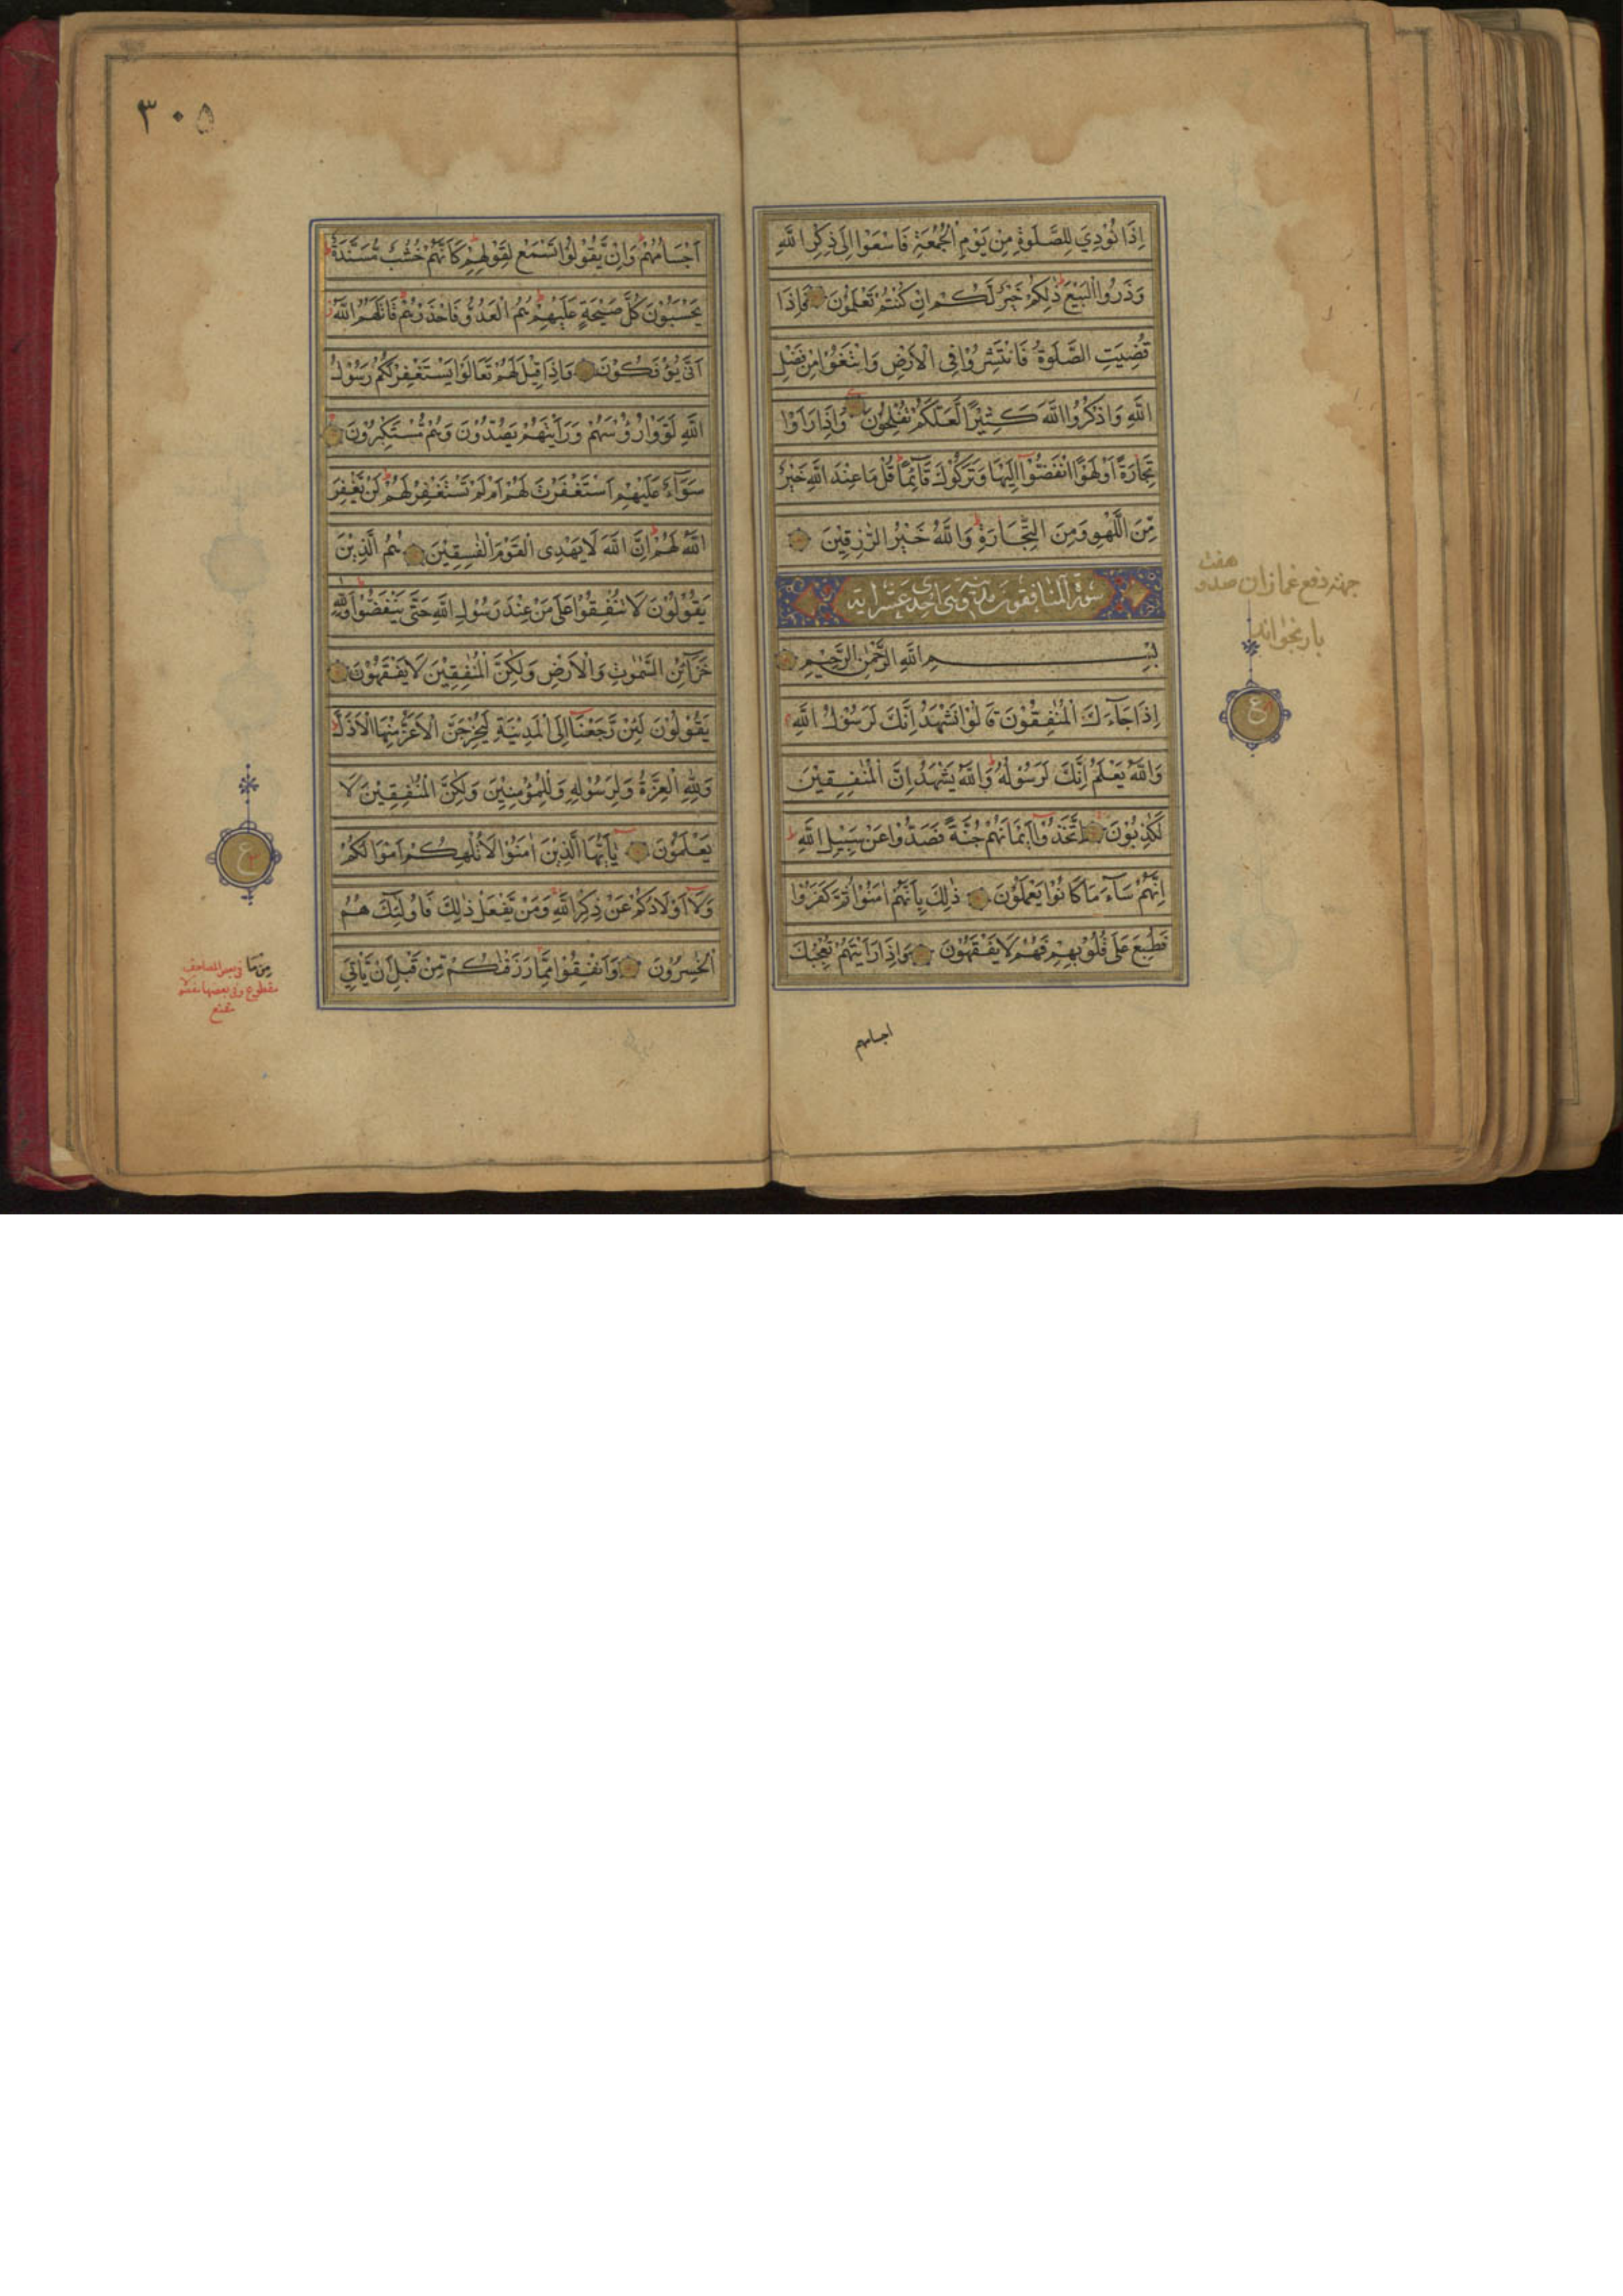 اِذَا نُوْدِيَ لِلصَّلٰوةِ مِنْ يَوْمِ الْجُمُعَةِ فَاسْعَوْا اِلٰى ذِكْرِ اللّٰهِ
وَذَرُوا الْبَيْعَ ذٰلِكُمْ خَيْرٌ لَّكُمْ اِنْ كُنْتُمْ تَعْلَمُوْنَ فَاِذَا
قُضِيَتِ الصَّلٰوةُ فَانْتَشِرُوْا فِى الْاَرْضِ وَابْتَغُوْا مِنْ فَضْلِ
اللّٰهِ وَاذْكُرُوا اللّٰهَ كَثِيْرًا لَّعَلَّكُمْ تُفْلِحُوْنَ وَاِذَا رَاَوْا
تِجَارَةً اَوْ لَهْوًا انْفَضُّوْا اِلَيْهَا وَتَرَكُوْكَ قَآئِمًا قُلْ مَا عِنْدَ اللّٰهِ خَيْرٌ
مِّنَ اللَّهْوِ وَمِنَ التِّجَارَةِ وَاللّٰهُ خَيْرُ الرّٰزِقِيْنَ
سورة المنافقون مدنية وهى احدى عشر اية
بِسْمِ اللّٰهِ الرَّحْمٰنِ الرَّحِيْمِ
اِذَا جَآءَكَ الْمُنٰفِقُوْنَ قَالُوْا نَشْهَدُ اِنَّكَ لَرَسُوْلُ اللّٰهِ
وَاللّٰهُ يَعْلَمُ اِنَّكَ لَرَسُوْلُهٗ وَاللّٰهُ يَشْهَدُ اِنَّ الْمُنٰفِقِيْنَ
لَكٰذِبُوْنَ اِتَّخَذُوْٓا اَيْمَانَهُمْ جُنَّةً فَصَدُّوْا عَنْ سَبِيْلِ اللّٰهِ
اِنَّهُمْ سَآءَ مَا كَانُوْا يَعْمَلُوْنَ ذٰلِكَ بِاَنَّهُمْ اٰمَنُوْا ثُمَّ كَفَرُوْا
فَطُبِعَ عَلٰى قُلُوْبِهِمْ فَهُمْ لَا يَفْقَهُوْنَ وَاِذَا رَاَيْتَهُمْ تُعْجِبُكَ
اجسامهم
هفت
جهته دفع غمازان صد و
بار بخواند
ع
٣٠٥
اَجْسَامُهُمْ وَاِنْ يَّقُوْلُوْا تَسْمَعْ لِقَوْلِهِمْ كَاَنَّهُمْ خُشُبٌ مُّسَنَّدَةٌ
يَحْسَبُوْنَ كُلَّ صَيْحَةٍ عَلَيْهِمْ هُمُ الْعَدُوُّ فَاحْذَرْهُمْ قَاتَلَهُمُ اللّٰهُ
اَنّٰى يُؤْفَكُوْنَ وَاِذَا قِيْلَ لَهُمْ تَعَالَوْا يَسْتَغْفِرْ لَكُمْ رَسُوْلُ
اللّٰهِ لَوَّوْا رُءُوْسَهُمْ وَرَاَيْتَهُمْ يَصُدُّوْنَ وَهُمْ مُّسْتَكْبِرُوْنَ
سَوَآءٌ عَلَيْهِمْ اَسْتَغْفَرْتَ لَهُمْ اَمْ لَمْ تَسْتَغْفِرْ لَهُمْ لَنْ يَّغْفِرَ
اللّٰهُ لَهُمْ اِنَّ اللّٰهَ لَا يَهْدِى الْقَوْمَ الْفٰسِقِيْنَ هُمُ الَّذِيْنَ
يَقُوْلُوْنَ لَا تُنْفِقُوْا عَلٰى مَنْ عِنْدَ رَسُوْلِ اللّٰهِ حَتّٰى يَنْفَضُّوْا وَلِلّٰهِ
خَزَآئِنُ السَّمٰوٰتِ وَالْاَرْضِ وَلٰكِنَّ الْمُنٰفِقِيْنَ لَا يَفْقَهُوْنَ
يَقُوْلُوْنَ لَئِنْ رَّجَعْنَآ اِلَى الْمَدِيْنَةِ لَيُخْرِجَنَّ الْاَعَزُّ مِنْهَا الْاَذَلَّ
وَلِلّٰهِ الْعِزَّةُ وَلِرَسُوْلِهٖ وَلِلْمُؤْمِنِيْنَ وَلٰكِنَّ الْمُنٰفِقِيْنَ لَا
يَعْلَمُوْنَ يٰٓاَيُّهَا الَّذِيْنَ اٰمَنُوْا لَا تُلْهِكُمْ اَمْوَالُكُمْ
وَلَآ اَوْلَادُكُمْ عَنْ ذِكْرِ اللّٰهِ وَمَنْ يَّفْعَلْ ذٰلِكَ فَاُولٰٓئِكَ هُمُ
الْخٰسِرُوْنَ وَاَنْفِقُوْا مِمَّا رَزَقْنٰكُمْ مِّنْ قَبْلِ اَنْ يَّاْتِيَ
ع
من ما المصاحف
مقطوع وفى بعضها